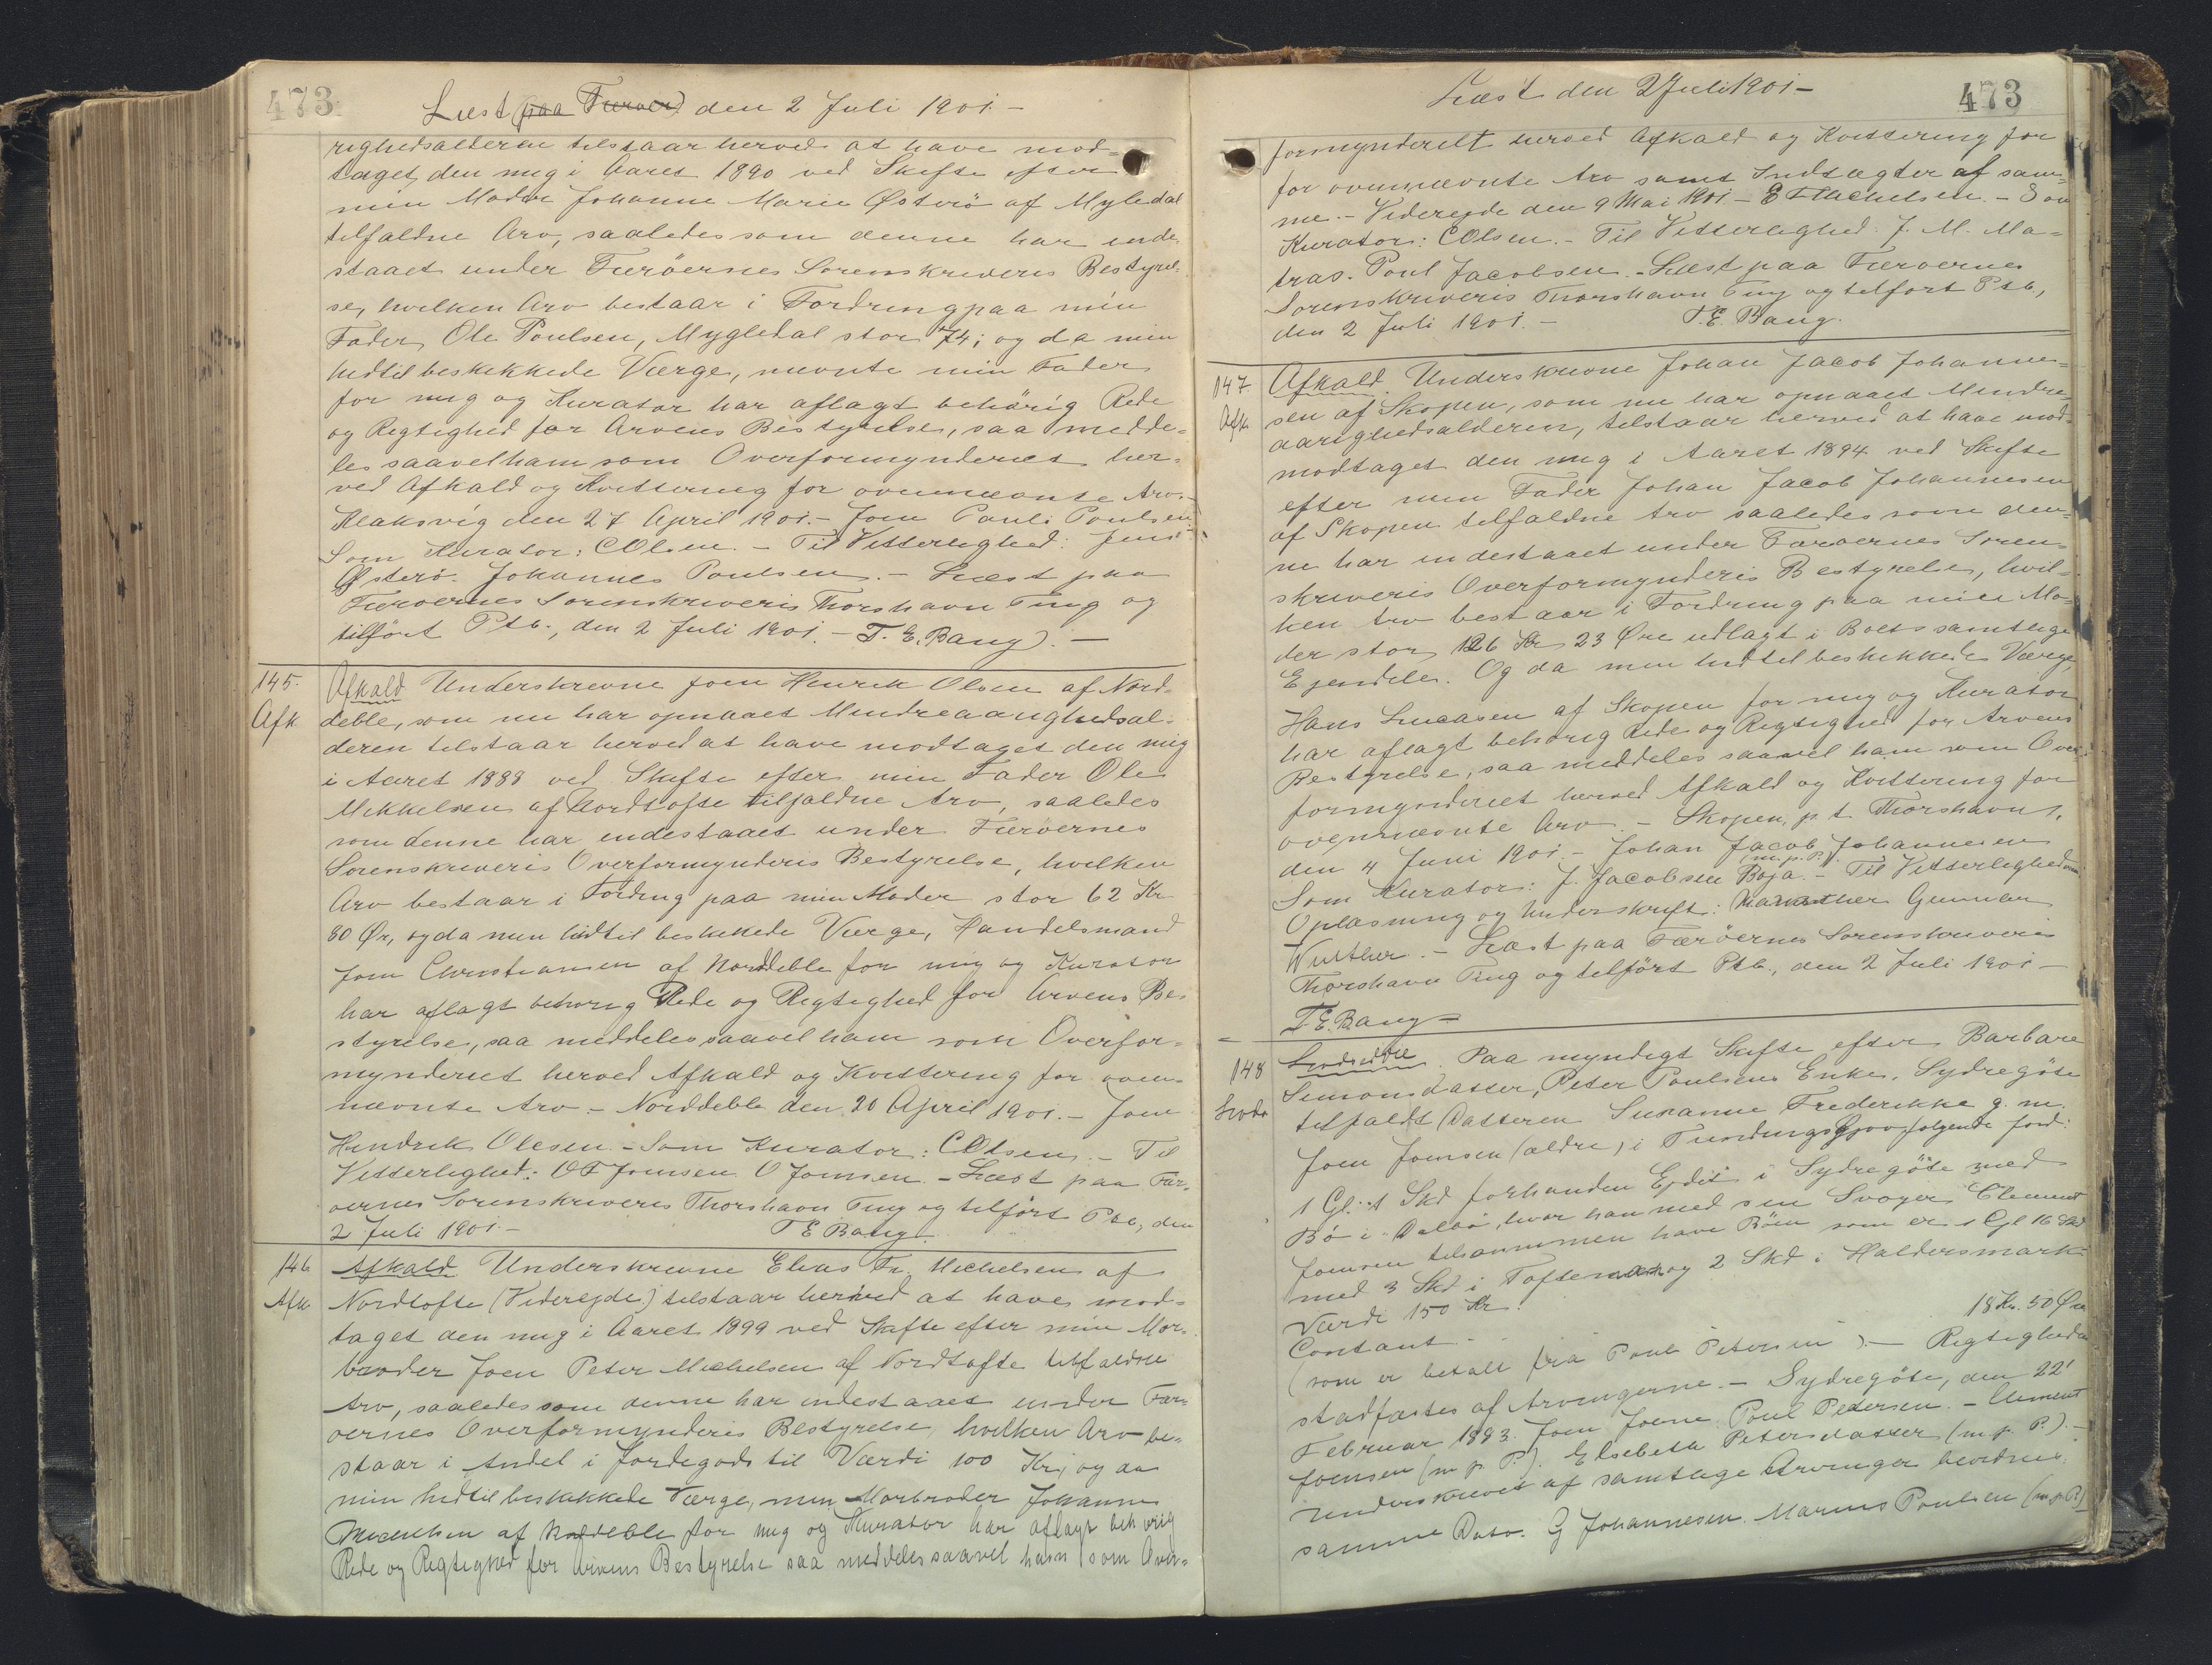 473
Læst paa Færøer den 2 Juli 1901.-
righedsalderen tilstaar herved at have mod=
taget den mig i Aaret 1890 ved Skifte efter
min Moder Johanne Marie Østerö af Myledal
tilfaldne Arv, saaledes som denne har inde-
staaet under Færöernes Sorenskriveris Bestyrel-
se, hvilken Arv bestaar i Fordring paa min
Fader, Ole Poulsen, Mygledal stor 74; og da min
hidtil beskikkede Værge, nævnte min Fader
for mig og Kurator har aflagt behörig Rede
og Rigtighed for Arvens Bestyrelse, saa medde-
les saavel ham som Overformynderiet her-
ved Afkald og Kvittering for ovennævnte Arv.-
Klaksvig den 27 April 1901.- Joen Pauli Poulsen
Som Kurator: COlsen. - Til Vitterlighed: Jens
Østerö. Johannes Poulsen. - Læst paa
Færoernes Sorenskriveris Thorshavn Ting og
tilfört Ptb., den 2 Juli 1901. - T. E. Bang). -
145.
Afk
Afkald Underskrevne Joen Henrik Olsen af Nord-
deble, som nu har opnaaet Mindreaarighedsal-
deren tilstaar herved at have modtaget den mig
i Aaret 1888 ved Skifte efter min Fader Ole
Mikkelsen af Nordtofte tilfaldne Arv, saaledes
som denne har indestaaet under Færöernes
Sorenskriveris Overformynderis Bestyrelse, hvilken
Arv bestaar i Fordring paa min Moder stor 62 Kr
80 Ør, og da min hidtil beskikkede Værge, Handelsmand
Joen Christiansen af Norddeble for mig og Kurator
har aflagt behörig Rede og Rigtighed for Arvens Be-
styrelse, saa meddeles saavel ham som Overfor-
mynderiet herved Afkald og Kvittering for oven-
nævnte Arv - Norddeble den 20 April 1901. - Joen
Hendrik Olesen. - Som Kurator: COlsen. - Til
Vitterlighed: OF Joensen O Joensen. - Læst paa Fær-
oernes Sorenskriveris Thorshavn Ting og tilfört Ptb., den
2 Juli 1901. - T E Bang.
146
Afk
Afkald Underskrevne Elias Fr. Michelsen af
Nordtofte (Viderejde) tilstaar herved at have mod-
taget den mig i Aaret 1899 ved Skifte efter min Mor-
broder Joen Peter Michelsen af Nordtofte tilfaldne
Arv, saaledes som denne har indestaaet under Fær-
oernes Overformynderis Bestyrelse, hvilken Arv be-
staar i Andel i Jordegods til Værdi 100 Kr; og da
min hidtil beskikkede Værge, min Morbroder Johannes
Michelsen af Norddeble for mig og Kurator har aflagt behörig
Rede og Rigtighed for Arvens Bestyrelse saa meddeles saavel ham som Over-
Læst den 2 Juli 1901 -
473
formynderiet herved Afkald og Kvittering for
for ovennævnte Arv samt Indtægter af sam-
me. - Viderejde den 9 Mai 1901. - E F Michelsen. - Som
Kurator: COlsen. - Til Vitterlighed: J. M. Ma-
tras. Poul Jacobsen. - Læst paa Færoernes
Sorenskriveris Thorshavn Ting og tilfört Ptb.,
den 2 Juli 1901. - T. E. Bang.
147.
Afk
Afkald. Underskrevne Johan Jacob Johanne-
sen af Skopen, som nu har opnaaet Mindre
aarighedsalderen, tilstaar herved at have mod-
modtaget den mig i Aaret 1894 ved Skifte
efter min Fader Johan Jacob Johannesen
af Skopen tilfaldne Arv saaledes som den-
ne har indestaaet under Færoernes Soren-
skriveris Overformynderis Bestyrelse, hvil-
ken Arv bestaar i Fordring paa min Mo-
der stor 126 Kr 23 Øre udlagt i Boets samtlige
Ejendele. Og da min hidtil beskikkede Værge,
Hans Lucasen af Skopen for mig og Kurator
har aflagt behörig Rede og Rigtighed for Arvens
Bestyrelse, saa meddeles saavel ham som Over-
formynderiet herved Afkald og Kvittering for
ovennævnte Arv. - Skopen, p. t. Thorshavn,
den 4 Juni 1901. - Johan Jacob Johannesen
(m. p. P.).
Som Kurator: J. Jacobsen Böja. - Til Vitterlighed om
Oplæsning og Underskrift: Gunnar
Wulther. - Læst paa Færöernes Sorenskriveris
Thorshavn Ting og tilfört Ptb., den 2 Juli 1901 -
T. E. Bang -
148
Paa myndigt Skifte efter Barbare
Simonsdatter, Peter Poulsens Enke, Sydregöte
tilfaldt Datteren Susanne Frederikke g. m.
Joen Joensen (ældre) i Funding följende Jord:
1 Gl. 1 Skd forhanden Ejdet i Sydregöte med
Bö i Dalbö, hvor han med sin Svoger Clement
Joensen tilsammen have Böen som er 1 Gl 16 Skd
med 3 Skd i Tofte og 2 Skd i Haldersmark
Værdi 150 Kr.
Contant - 18 Kr. 50 Øre
(som er betalt fra Poul Petersen). - Rigtigheden
stadfæstes af Arvingerne. - Sydregöte, den 22'
Februar 1893. Joen Joens. Poul Petersen. - Clement
Joensen (m. p. P.). Elsebeth Petersdatter (m. p. P.). -
Underskrevet af samtlige Arvinger bevidnes.
samme Dato. G Johannesen. Marius Poulsen (m. p. P.)